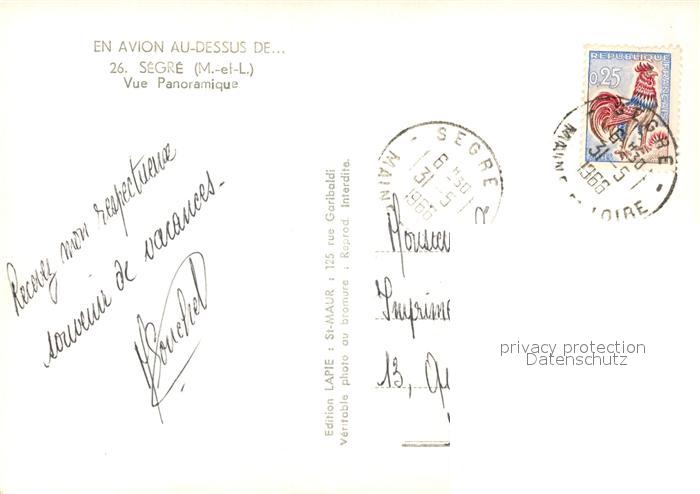 EN AVION AU-DESSUS DE...
26. SEGRÉ (M.-et-L.)
Vue Panoramique
Recevez mon respectueux
souvenir de vacances-
Edition LAPIE : St-MAUR : 125 rue Garibaldi
Véritable photo au bromure : Reprod. Interdite.
REPUBLIQUE FRANÇAISE
0,25
SEGRÉ
6 H30
31-5
1966
MAIN
SEGRÉ
6 H30
31-5
1966
MAINE LOIRE
Monsieu
Imprime
13,
privacy protection
Datenschutz